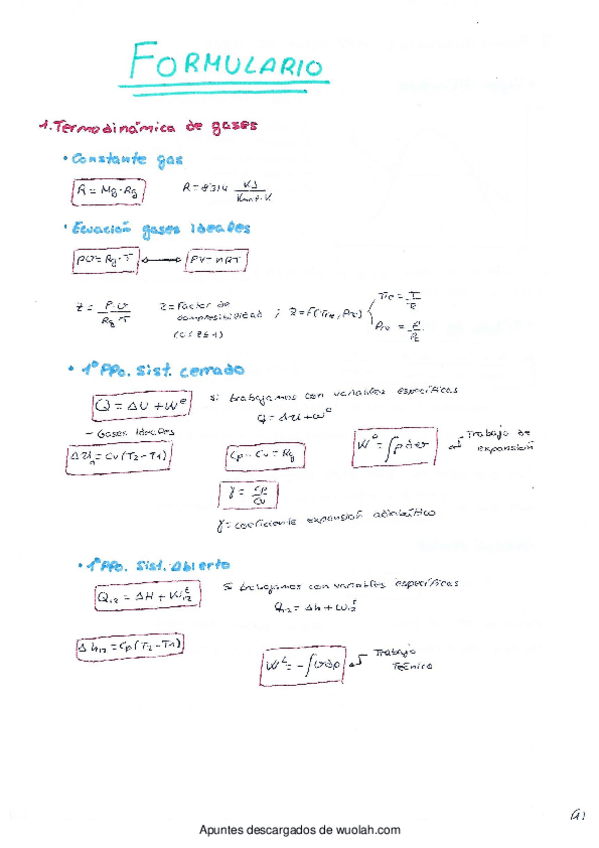 FORMULARIO
1. Termodinámica de gases
• Constante gas
R = Mg · Rg    R = 8'314 KJ / Kmol·K
• Ecuación gases ideales
pv = Rg·T ↔ PV = nRT
Z = P·v / Rg·T    Z = Factor de compresibilidad ; Z = F(Tre, Pre)    Tre = T/Tc
(0≤Z≤1)    Pre = P/Pc
• 1º PPo. Sist. cerrado
Q = ΔU + Wᵉ    si trabajamos con variables específicas
q = Δu + wᵉ
- Gases ideales
Δu = Cv(T2-T1)    Cp - Cv = Rg    Wᵉ = ∫pdv    Trabajo de expansión
γ = Cp/Cv
γ = coeficiente expansión adiabático
• 1º PPo. Sist. Abierto
Q12 = ΔH + W12ᵗ    si trabajamos con variables específicas
q12 = Δh + w12ᵗ
Δh12 = Cp(T2-T1)    Wᵗ = -∫vdp    Trabajo Técnico
Apuntes descargados de wuolah.com